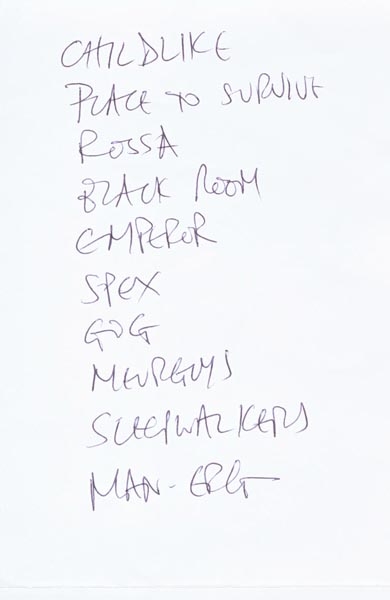 CHILDLIKE
PLACE TO SURVIVE
ROSSA
BLACK ROOM
EMPEROR
SPEX
GOG
MEURGLYS
SLEEPWALKERS
MAN-ERG